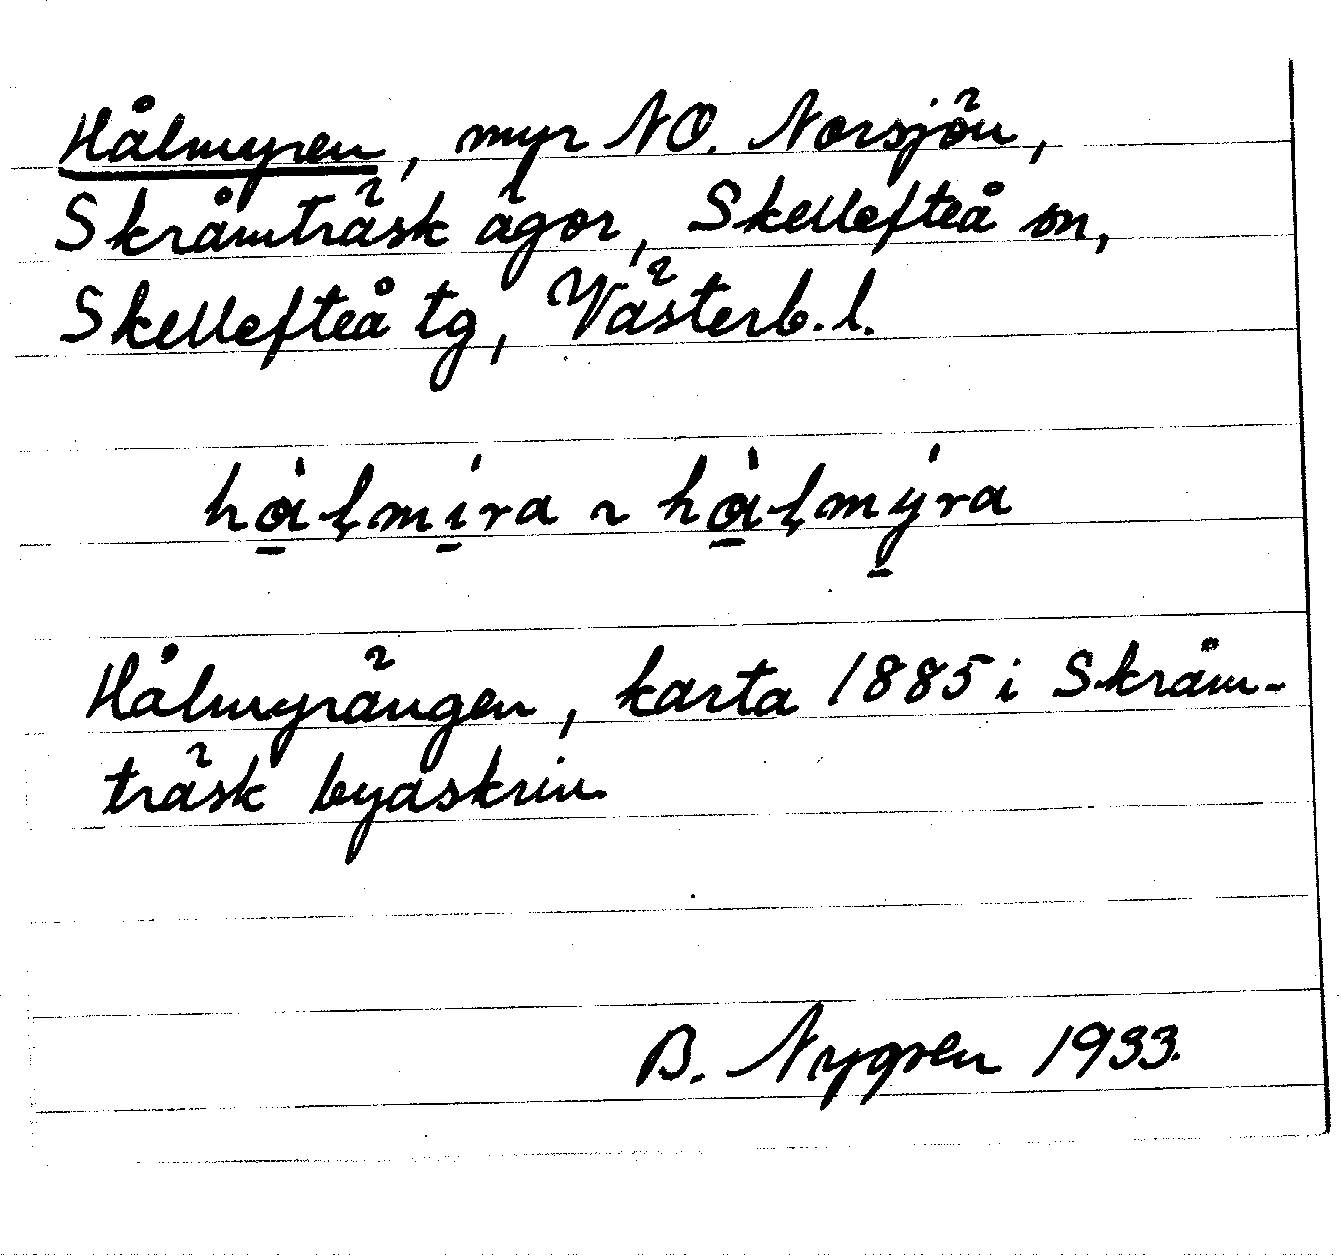 Hålmyren, myr NO. Norsjön,
Skråmträsk ägor, Skellefteå sn,
Skellefteå tg, Västerb. l.
hå̀l̥mi̱ra ~ hå̀l̥my̱ra
Hålmyrängen, karta 1885 i Skråm-
träsk byaskrin.
B. Nygren 1933.